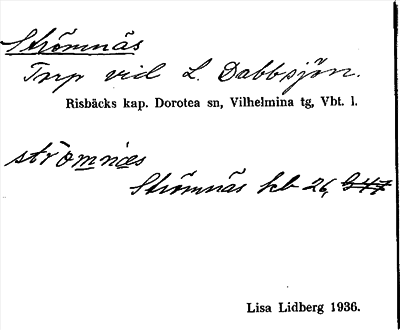 Strömnäs
Trp vid L. Dabbsjön.
Risbäcks kap. Dorotea sn, Vilhelmina tg, Vbt. l.
strömnæs
Strömnäs kb 26,
Lisa Lidberg 1936.